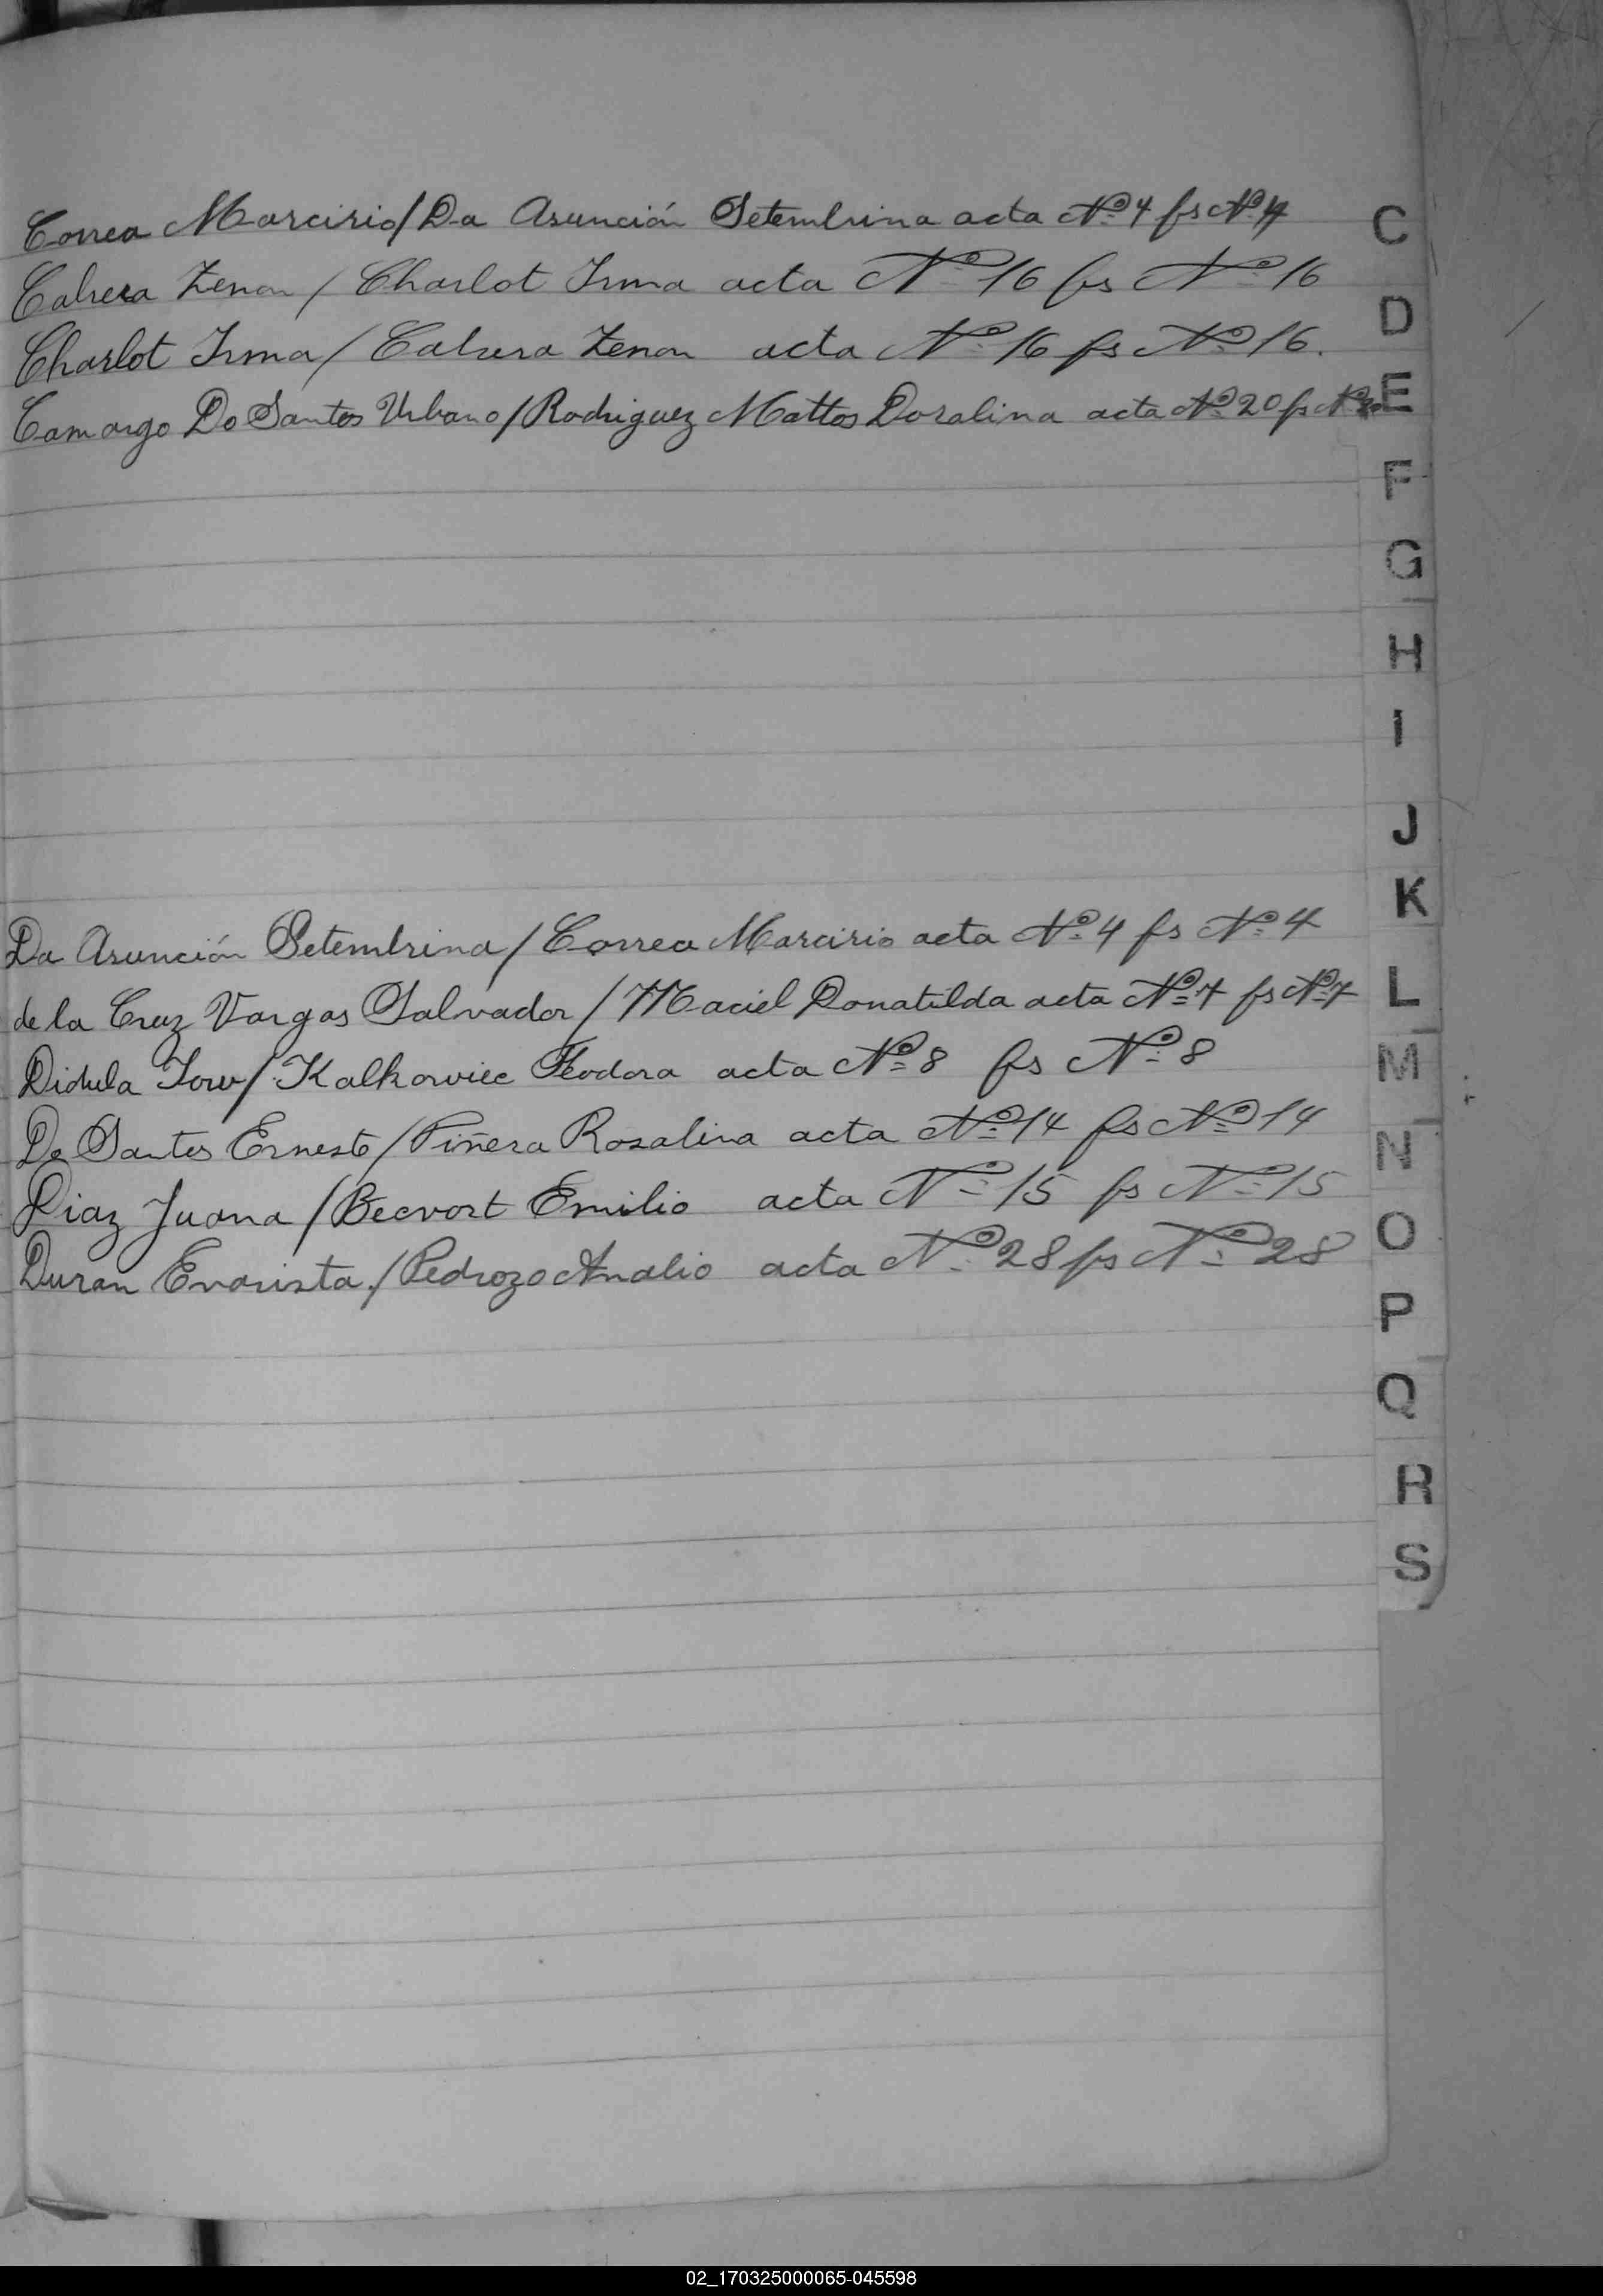 Correa Marcirio/Da Asunción Setembrina acta Nº 4 fs Nº 4
C
Cabrera Zenon / Charlot Irma acta Nº 16 fs Nº 16
D
Charlot Irma / Cabrera Zenon acta Nº 16 fs Nº 16.
E
Camargo Do Santos Urbano/Rodriguez Mattos Doralina acta Nº 20 fs Nº
F
G
H
I
J
K
Da Asunción Setembrina / Correa Marcirio acta Nº 4 fs Nº 4
de la Cruz Vargas Salvador / Maciel Donatilda acta Nº 7 fs Nº 7
L
Didula Iow / Kalkowiec Feodora acta Nº 8 fs Nº 8
M
De Santos Ernesto / Piñera Rosalina acta Nº 14 fs Nº 14
N
Diaz Juana / Becvort Emilio acta Nº 15 fs Nº 15
O
Duran Evarista / Pedrozo Analio acta Nº 28 fs Nº 28
P
Q
R
S
02_170325000065-045598